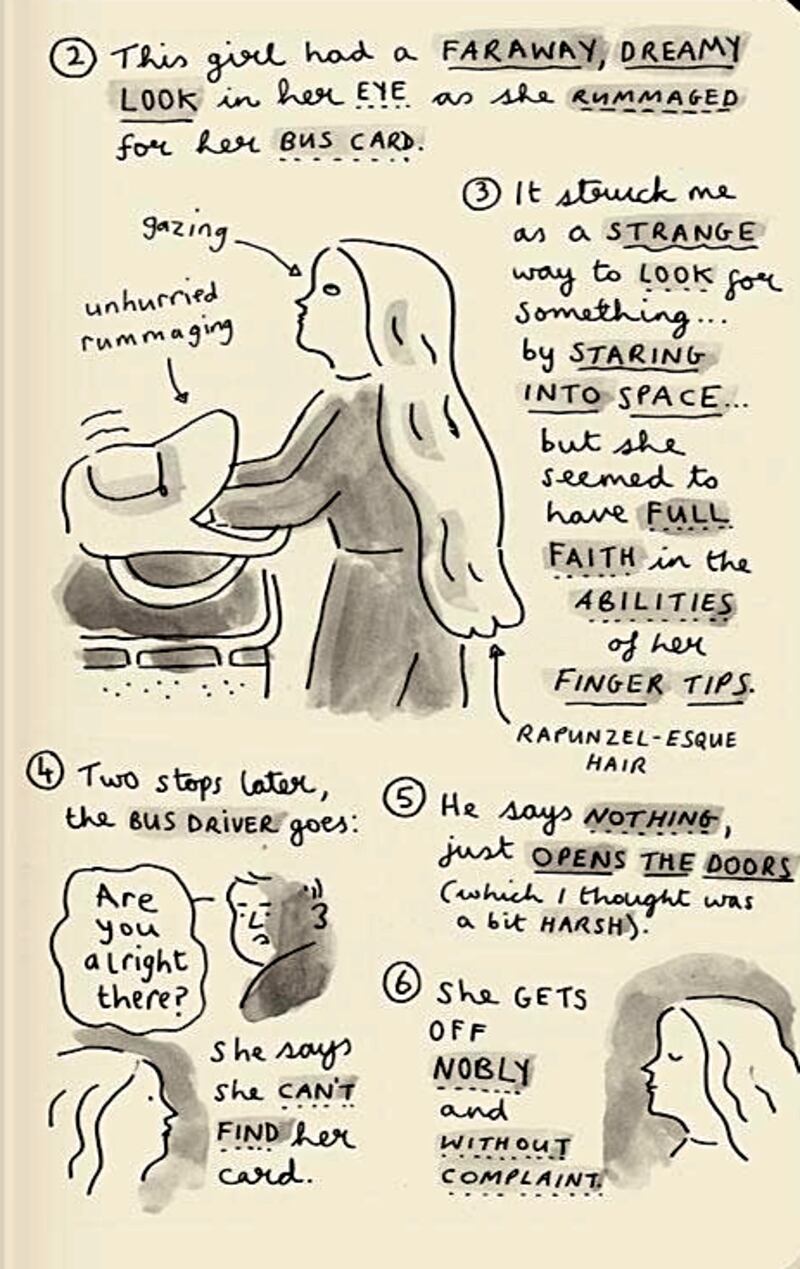 ② This girl had a FARAWAY, DREAMY
LOOK in her EYE as she RUMMAGED
for her BUS CARD.
gazing
unhurried
rummaging
③ It struck me
as a STRANGE
way to LOOK for
something...
by STARING
INTO SPACE...
but she
seemed to
have FULL
FAITH in the
ABILITIES
of her
FINGER TIPS.
RAPUNZEL-ESQUE
HAIR
④ Two stops later,
the BUS DRIVER goes:
Are
you
alright
there?
She says
she CAN'T
FIND her
card.
⑤ He says NOTHING,
just OPENS THE DOORS
(which I thought was
a bit HARSH).
⑥ She GETS
OFF
NOBLY
and
WITHOUT
COMPLAINT.